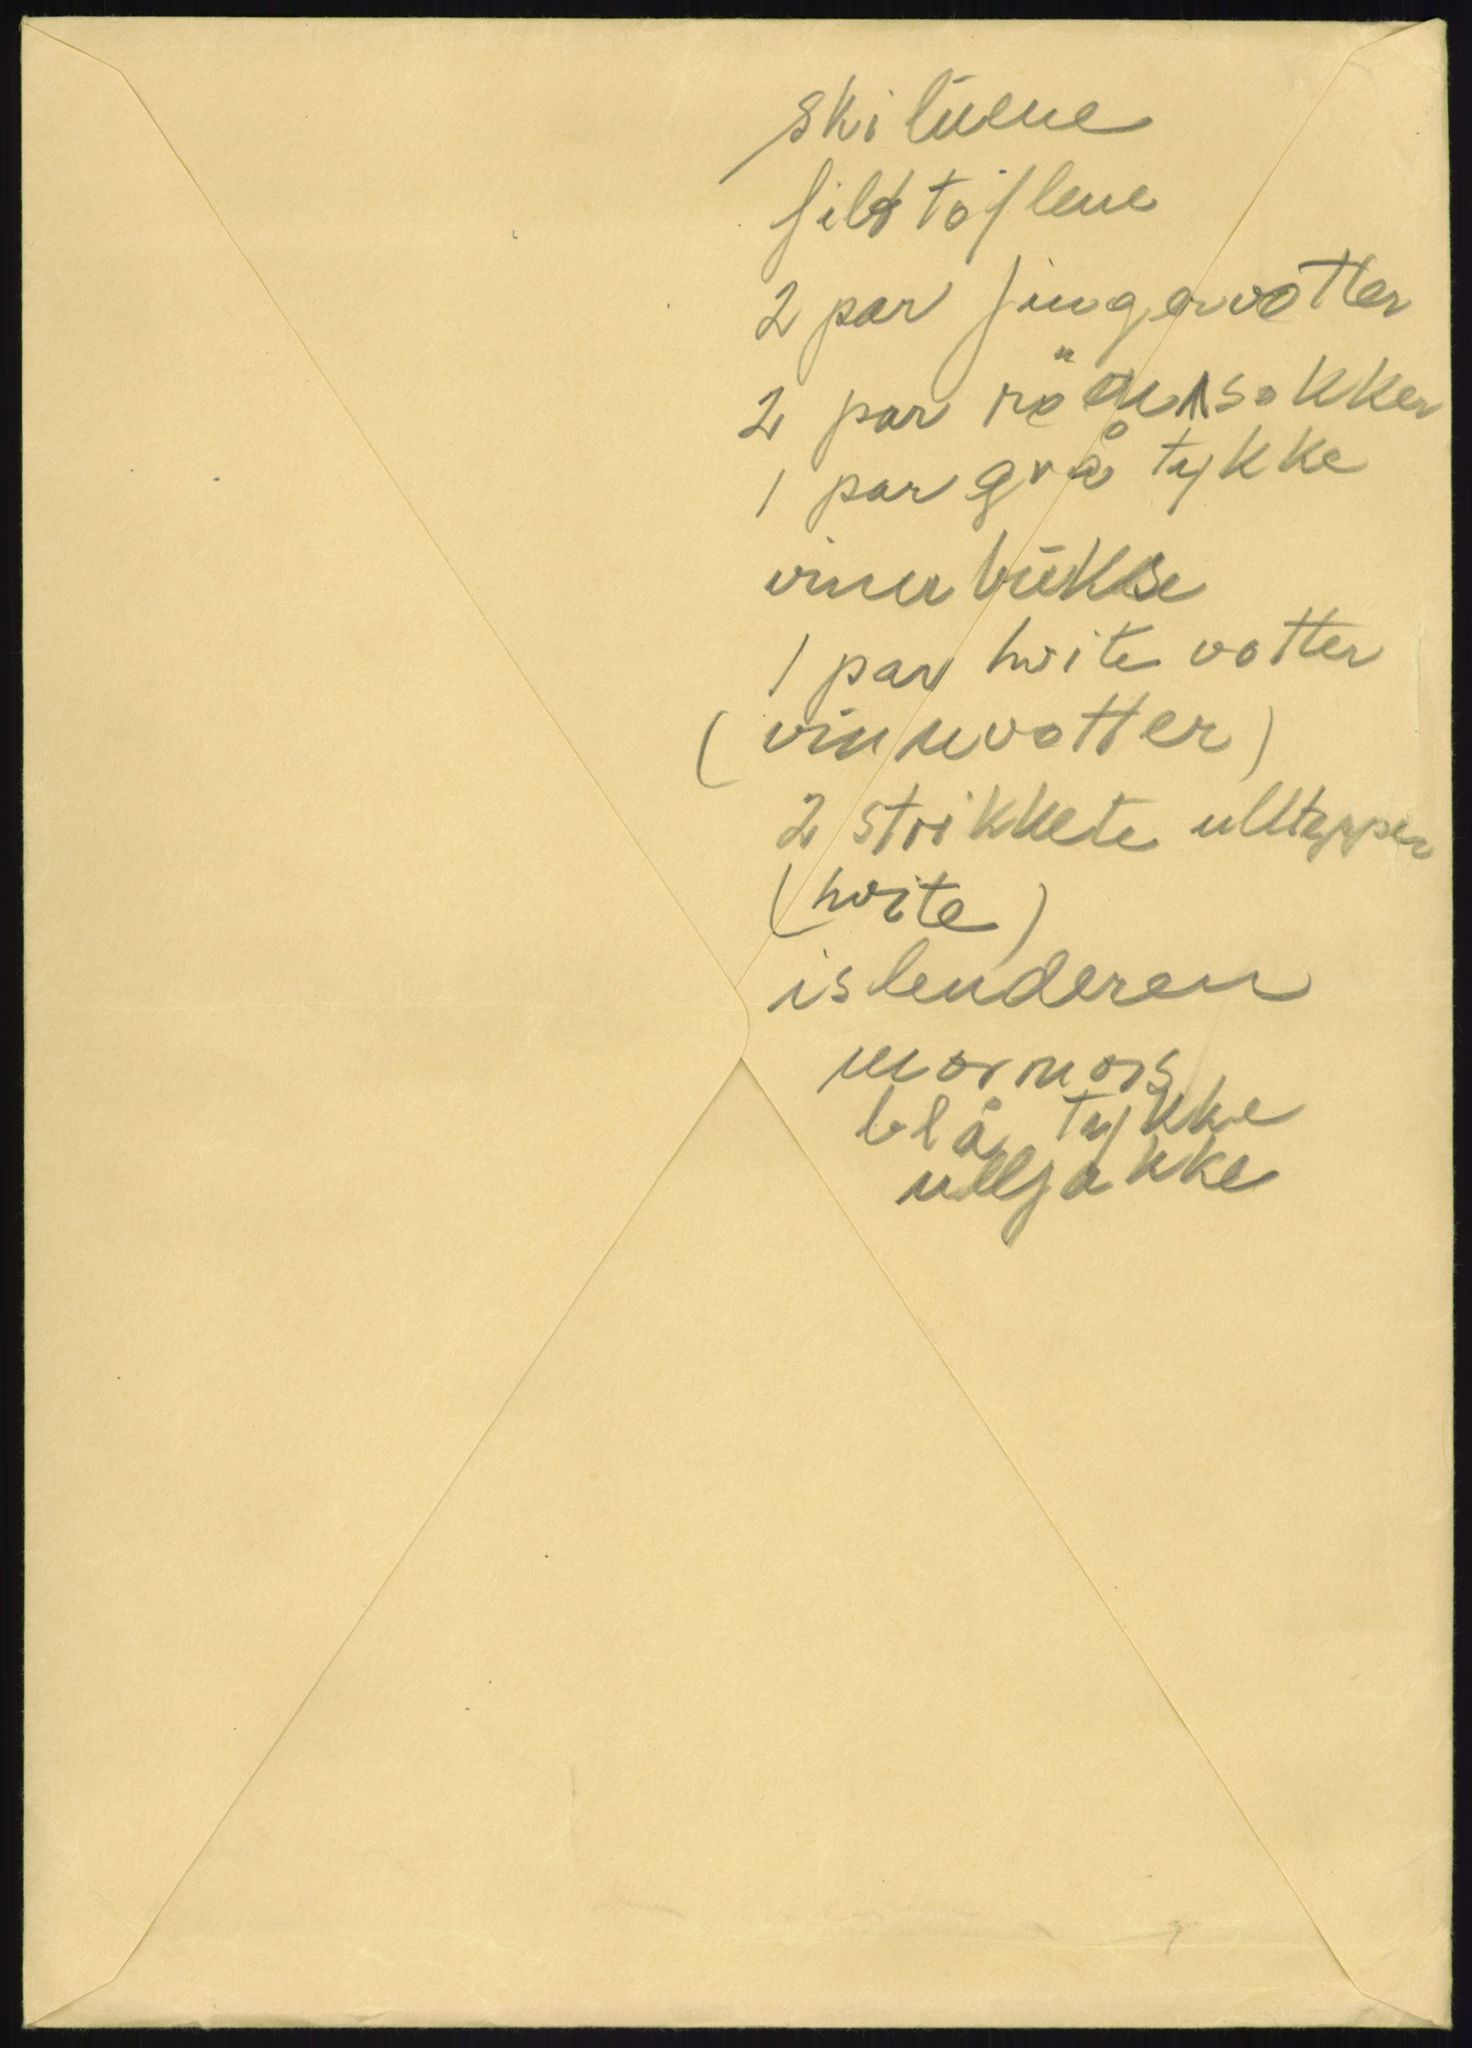 skilüene
filttöflene
2 par fingervotter
2 par sokker
1 par grå tykke
vinnbükse
1 par hvite votter
(vinnvotter)
2 strikkete ulltepper
(hvite)
islenderen
mormors
blå tykke
ulljakke